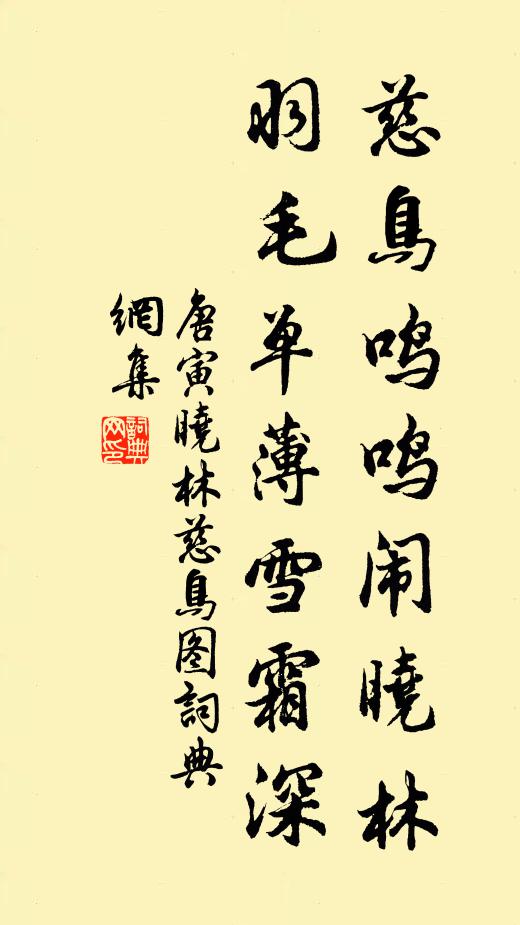 慈鳥鳴鳴闹曉林
羽毛单薄雪霜深
唐寅曉林慈鳥图詞典
網集
詞典
网印